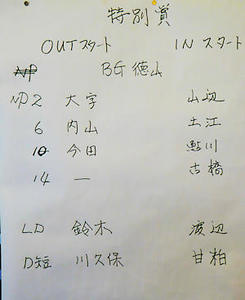 特別賞
OUTスタート INスタート
NP BG 徳山
NP 2 大字 山辺
6 内山 土江
10 今田 鮎川
14 — 古橋
LD 鈴木 渡辺
D短 川久保 甘粕